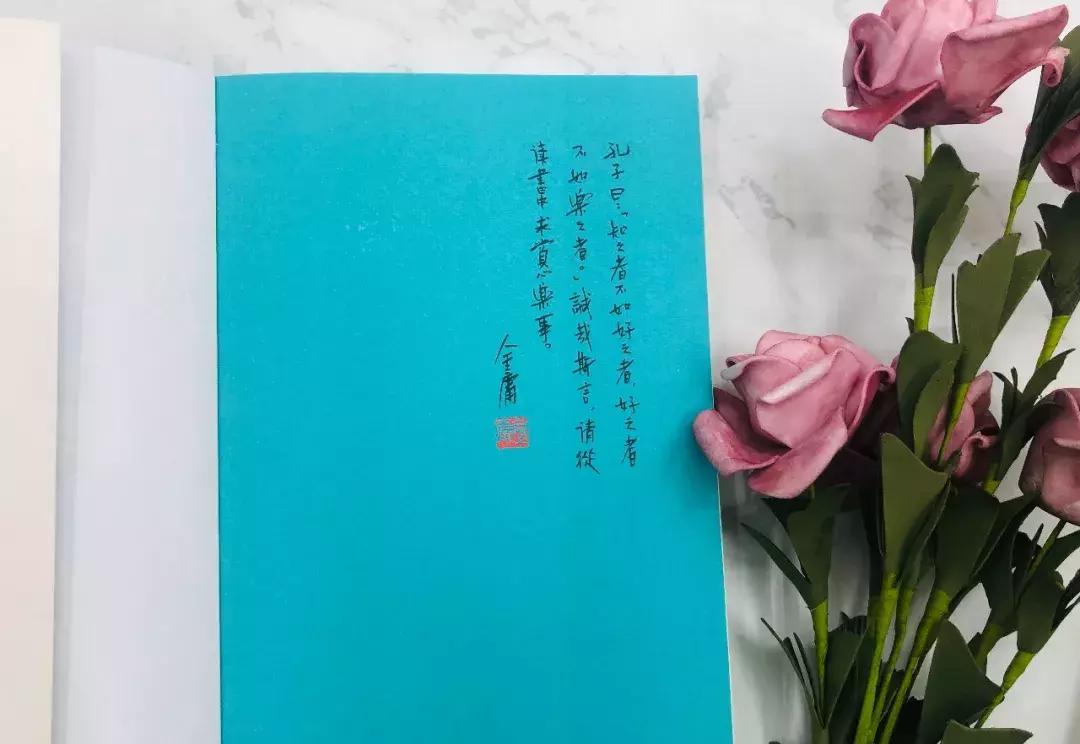 孔子曰「知之者不如好之者，好之者
不如樂之者。」誠哉斯言，请從
读書中求賞心樂事。
金庸